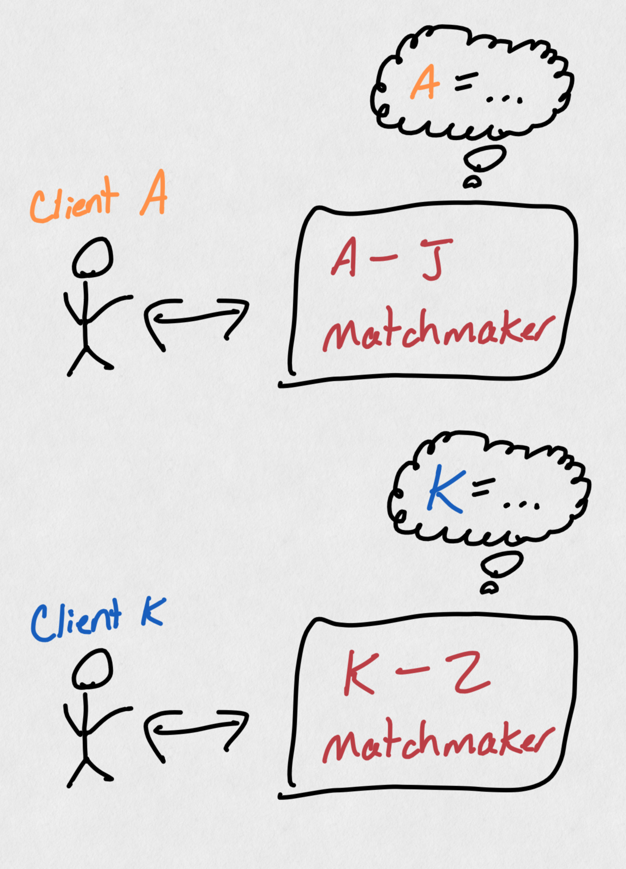 A = ...
Client A
A – J
matchmaker
K = ...
Client K
K – Z
matchmaker